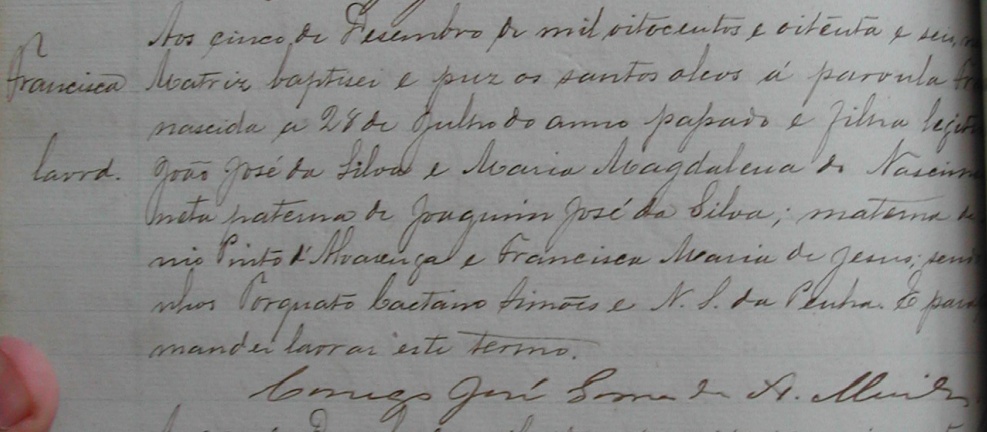 Aos cinco de Desembro de mil oitocentos e oitenta e seis, n
Francisca Matriz baptisei e puz os santos oleos á parvula Fr
nascida a 28 de Julho do anno passado e filha legiti
lavrd. João José da Silva e Maria Magdalena do Nascim
neta paterna de Joaquim José da Silva; materna de
nio Pinto d'Alvarenga e Francisca Maria de Jesus; sen
nhos Torquato Caetano Simões e N. S. da Penha. E para
mandei lavrar este termo.
Conego José de A.